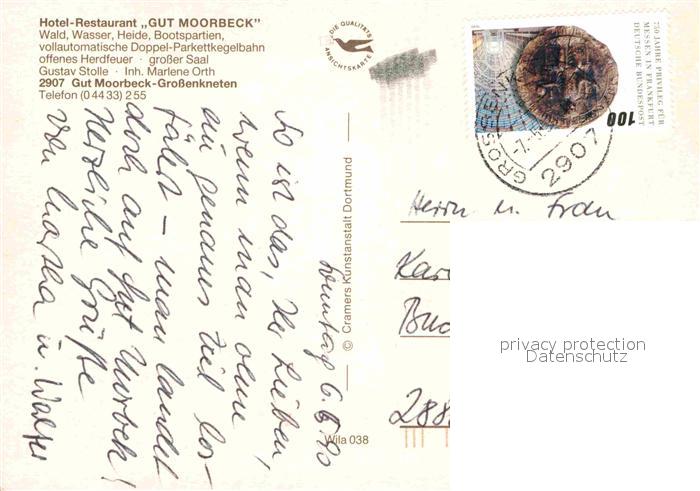 Hotel-Restaurant „GUT MOORBECK"
Wald, Wasser, Heide, Bootspartien,
vollautomatische Doppel-Parkettkegelbahn
offenes Herdfeuer · großer Saal
Gustav Stolle · Inh. Marlene Orth
2907 Gut Moorbeck-Großenkneten
Telefon (0 44 33) 2 55
DIE QUALITÄTS
ANSICHTSKARTE
750 JAHRE PRIVILEG FÜR
MESSEN IN FRANKFURT
DEUTSCHE BUNDESPOST
100
2907
Sonntag 6. 5. 90
So ist das, Ihr Lieben,
wenn man ohne
ein genaues Ziel los-
fährt – man landet
doch auf Gut Moorbeck!
Herzliche Grüße
von Martha u. Walter
© Cramers Kunstanstalt Dortmund
Wila 038
Herrn u. Frau
Kar
288
privacy protection
Datenschutz